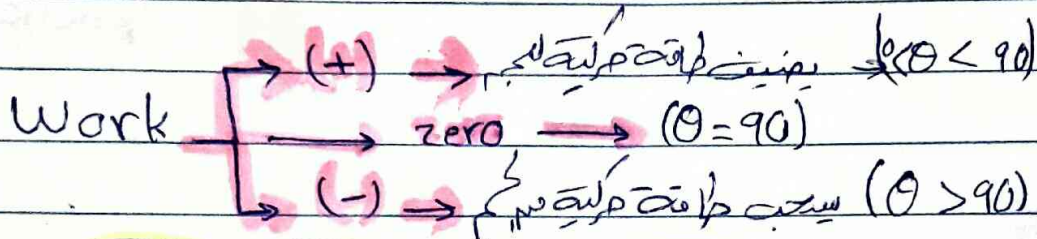 (+) → يضيف طاقة حركية للجسم (0<θ < 90)
Work → zero → (θ = 90)
(-) → يسحب طاقة حركية من الجسم (θ > 90)